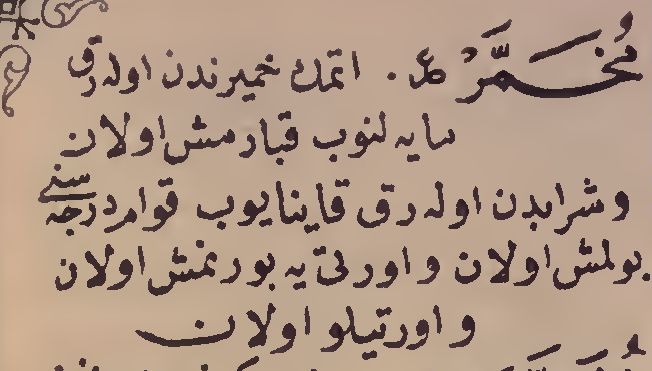 مُخَمَّرْ ع. اتمك خميرندن اوله رق
مايه لنوب قبارمش اولان
و شرابدن اوله رق قاينايوب قوام درجه سنى
بولمش اولان و اورتى يه بورنمش اولان
و اورتيلو اولان